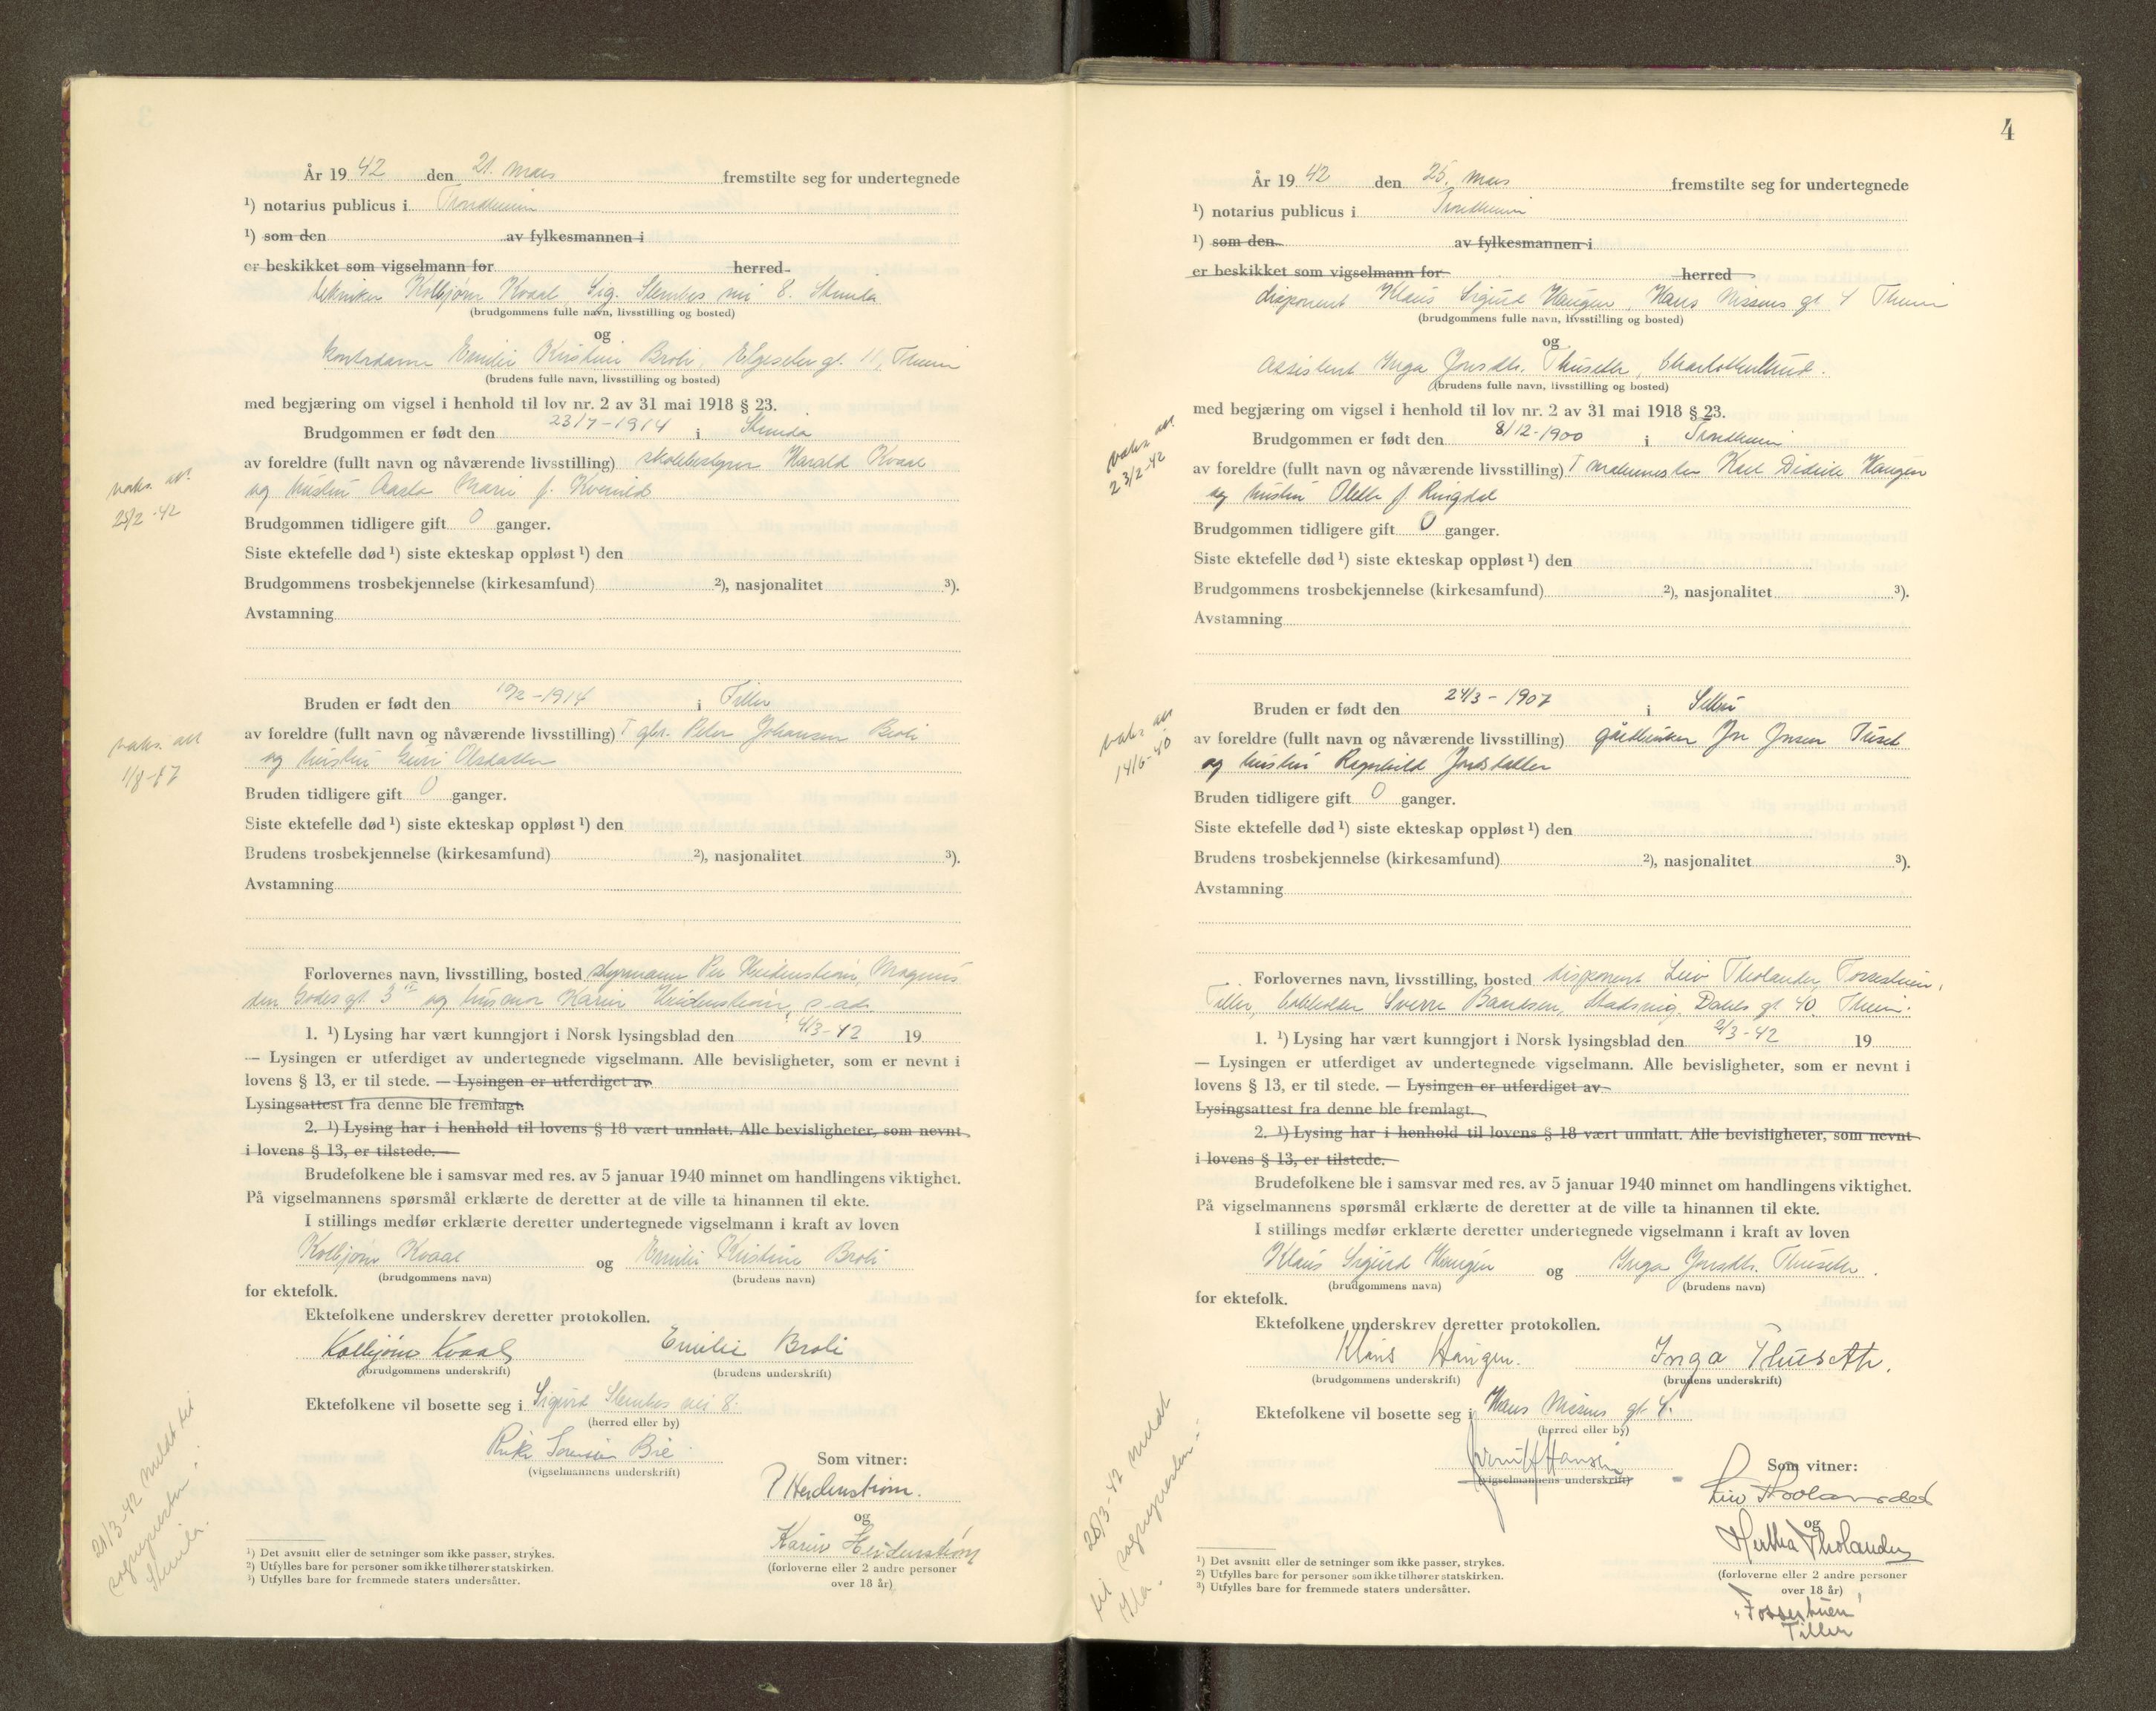 År 19 42 den 21. mars fremstilte seg for undertegnede
¹) notarius publicus i Trondheim
¹) som den av fylkesmannen i
er beskikket som vigselmann for herred
tekniker Kolbjørn Kvaal, Sig. Stenbos vei 8. Strinda
(brudgommens fulle navn, livsstilling og bosted)
og
kontordame Emilie Kristine Broli, Elgesetergt. 11, Theim
(brudens fulle navn, livsstilling og bosted)
med begjæring om vigsel i henhold til lov nr. 2 av 31 mai 1918 § 23.
Brudgommen er født den 23/7-1914 i Strinda
av foreldre (fullt navn og nåværende livsstilling) skolebestyrer Harald Kvaal
og hustru Aasta Marie f. Kvenild
vaks. att
25/2-42
Brudgommen tidligere gift 0 ganger.
Siste ektefelle død ¹) siste ekteskap oppløst ¹) den
Brudgommens trosbekjennelse (kirkesamfund) ²), nasjonalitet ³).
Avstamning
Bruden er født den 19/2-1914 i Tiller
av foreldre (fullt navn og nåværende livsstilling) † gbr. Peter Johansen Broli
og hustru Guri Olsdatter
vaks. att
1/8-
Bruden tidligere gift 0 ganger.
Siste ektefelle død ¹) siste ekteskap oppløst ¹) den
Brudens trosbekjennelse (kirkesamfund) ²), nasjonalitet ³).
Avstamning
Forlovernes navn, livsstilling, bosted styrmann Per Heidenstrøm, Magnus
den Godes gt. 3 og husmor Karin Heidenstrøm, s. ad.
1. ¹) Lysing har vært kunngjort i Norsk lysingsblad den 4/3-42 19
— Lysingen er utferdiget av undertegnede vigselmann. Alle bevisligheter, som er nevnt i
lovens § 13, er til stede. — Lysingen er utferdiget av
Lysingsattest fra denne ble fremlagt.
2. ¹) Lysing har i henhold til lovens § 18 vært unnlatt. Alle bevisligheter, som nevnt
i lovens § 13, er tilstede. —
Brudefolkene ble i samsvar med res. av 5 januar 1940 minnet om handlingens viktighet.
På vigselmannens spørsmål erklærte de deretter at de ville ta hinannen til ekte.
I stillings medfør erklærte deretter undertegnede vigselmann i kraft av loven
Kolbjørn Kvaal og Emilie Kristine Broli
(brudgommens navn) (brudens navn)
for ektefolk.
Ektefolkene underskrev deretter protokollen.
Kolbjørn Kvaal Emilie Broli
(brudgommens underskrift) (brudens underskrift)
Ektefolkene vil bosette seg i Sigurd Stenbos vei 8.
(herred eller by)
(vigselmannens underskrift)
Som vitner:
P Heidenstrøm.
og
Karin Heidenstrøm
(forloverne eller 2 andre personer
over 18 år)
21/3-42 meldt til
sognepresten i
Strinda.
¹) Det avsnitt eller de setninger som ikke passer, strykes.
²) Utfylles bare for personer som ikke tilhører statskirken.
³) Utfylles bare for fremmede staters undersåtter.
4
År 19 42 den 25. mars fremstilte seg for undertegnede
¹) notarius publicus i Trondheim
¹) som den av fylkesmannen i
er beskikket som vigselmann for herred
disponent Klaus Sigurd Haugen, Hans Nissens gt. 4 Theim
(brudgommens fulle navn, livsstilling og bosted)
og
assistent Inga Jonsdtr. Thuseth, Charlottenlund.
(brudens fulle navn, livsstilling og bosted)
med begjæring om vigsel i henhold til lov nr. 2 av 31 mai 1918 § 23.
vaks. att
23/2-42
Brudgommen er født den 8/12-1900 i Trondheim
av foreldre (fullt navn og nåværende livsstilling) † malermester Karl Didrik Haugen
og hustru Olette f. Ringdal
Brudgommen tidligere gift 0 ganger.
Siste ektefelle død ¹) siste ekteskap oppløst ¹) den
Brudgommens trosbekjennelse (kirkesamfund) ²), nasjonalitet ³).
Avstamning
Bruden er født den 24/3-1907 i Selbu
vaks. att
14/6-40
av foreldre (fullt navn og nåværende livsstilling) gårdbruker Jon Jonsen Tuset
og hustru Ragnhild Jonsdatter
Bruden tidligere gift 0 ganger.
Siste ektefelle død ¹) siste ekteskap oppløst ¹) den
Brudens trosbekjennelse (kirkesamfund) ²), nasjonalitet ³).
Avstamning
Forlovernes navn, livsstilling, bosted disponent Leiv Tholander, Fossestuen,
Tiller, bokholder Sverre Baardsen, Stadsing. Dahls gt 40, Theim.
1. ¹) Lysing har vært kunngjort i Norsk lysingsblad den 2/3-42 19
— Lysingen er utferdiget av undertegnede vigselmann. Alle bevisligheter, som er nevnt i
lovens § 13, er til stede. — Lysingen er utferdiget av
Lysingsattest fra denne ble fremlagt.
2. ¹) Lysing har i henhold til lovens § 18 vært unnlatt. Alle bevisligheter, som nevnt
i lovens § 13, er tilstede.
Brudefolkene ble i samsvar med res. av 5 januar 1940 minnet om handlingens viktighet.
På vigselmannens spørsmål erklærte de deretter at de ville ta hinannen til ekte.
I stillings medfør erklærte deretter undertegnede vigselmann i kraft av loven
Klaus Sigurd Haugen og Inga Jonsdtr. Thuseth.
(brudgommens navn) (brudens navn)
for ektefolk.
Ektefolkene underskrev deretter protokollen.
Klaus Haugen. Inga Thuseth.
(brudgommens underskrift) (brudens underskrift)
Ektefolkene vil bosette seg i Hans Nissens gt. 4.
(herred eller by)
Hansen
(vigselmannens underskrift)
Som vitner:
Leiv Tholander
og
Hertha Tholander
(forloverne eller 2 andre personer
over 18 år)
"Fossestuen"
Tiller
25/3-42 meldt
til sognepresten i
Ila.
¹) Det avsnitt eller de setninger som ikke passer, strykes.
²) Utfylles bare for personer som ikke tilhører statskirken.
³) Utfylles bare for fremmede staters undersåtter.